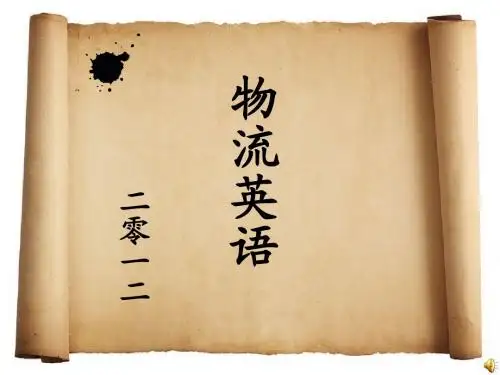 物流英语
二零一二